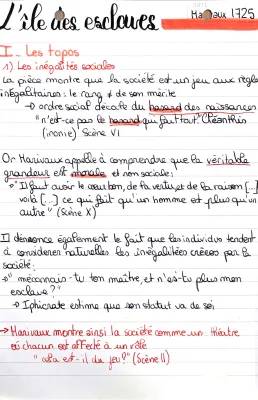 L'île des esclaves
Marivaux 1725
I - Les topos
1) Les inégalités sociales
La pièce montre que la société est un jeu aux règles
inégalitaires : le rang ≠ de son mérite
→ ordre social décale du hasard des naissances
"n'est-ce pas le hasard qui fait tout" Cléanthis
(ironie) Scène VI
Or Marivaux appelle à comprendre que la véritable
grandeur est morale et non sociale :
"Il faut avoir le cœur bon, de la vertu et de la raison [...]
voilà [...] ce qui fait qu'un homme est plus qu'un
autre" (Scène X)
Il dénonce également le fait que les individus tendent
à considérer naturelles les inégalités créées par la
société :
→ "méconnais-tu ton maître, et n'es-tu plus mon
esclave ?"
↳ Iphicrate estime que son statut va de soi
→ Marivaux montre ainsi la société comme un théâtre
où chacun est affecté à un rôle
est-il du jeu ?" (Scène II)